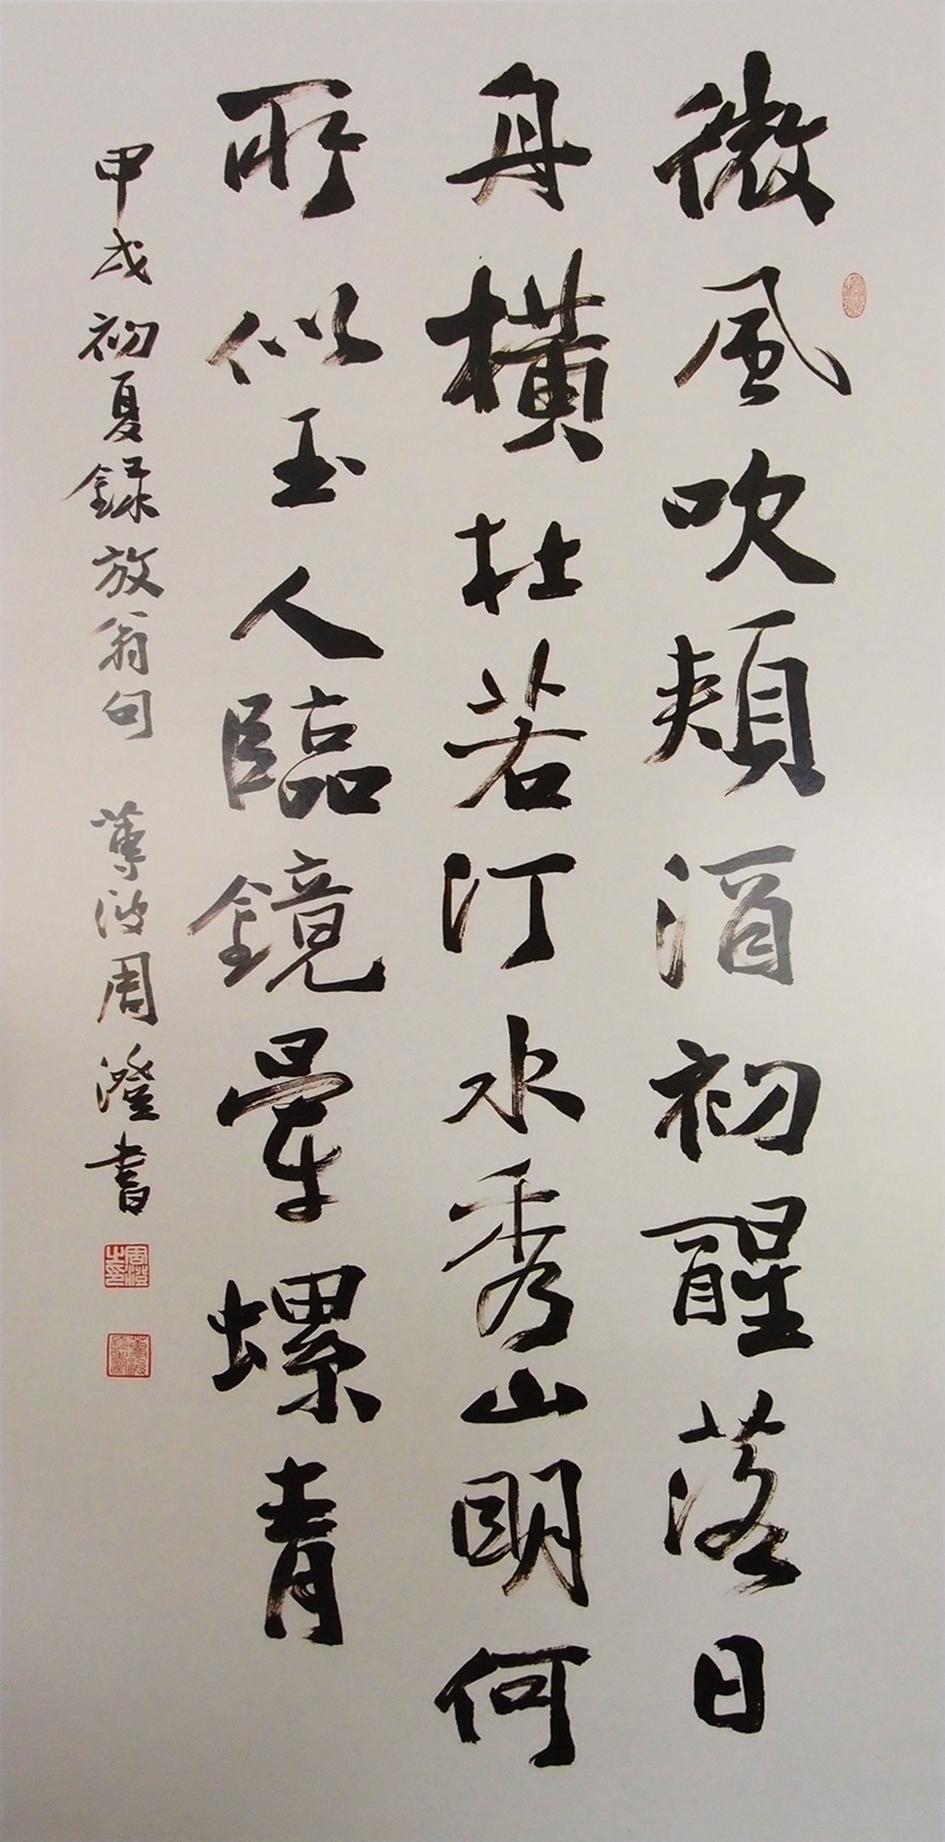 微風吹頰酒初醒落日
舟橫杜若汀水秀山明何
所似玉人臨鏡暈螺青
甲戌初夏錄放翁句 蓴波周澄書
周澄之印